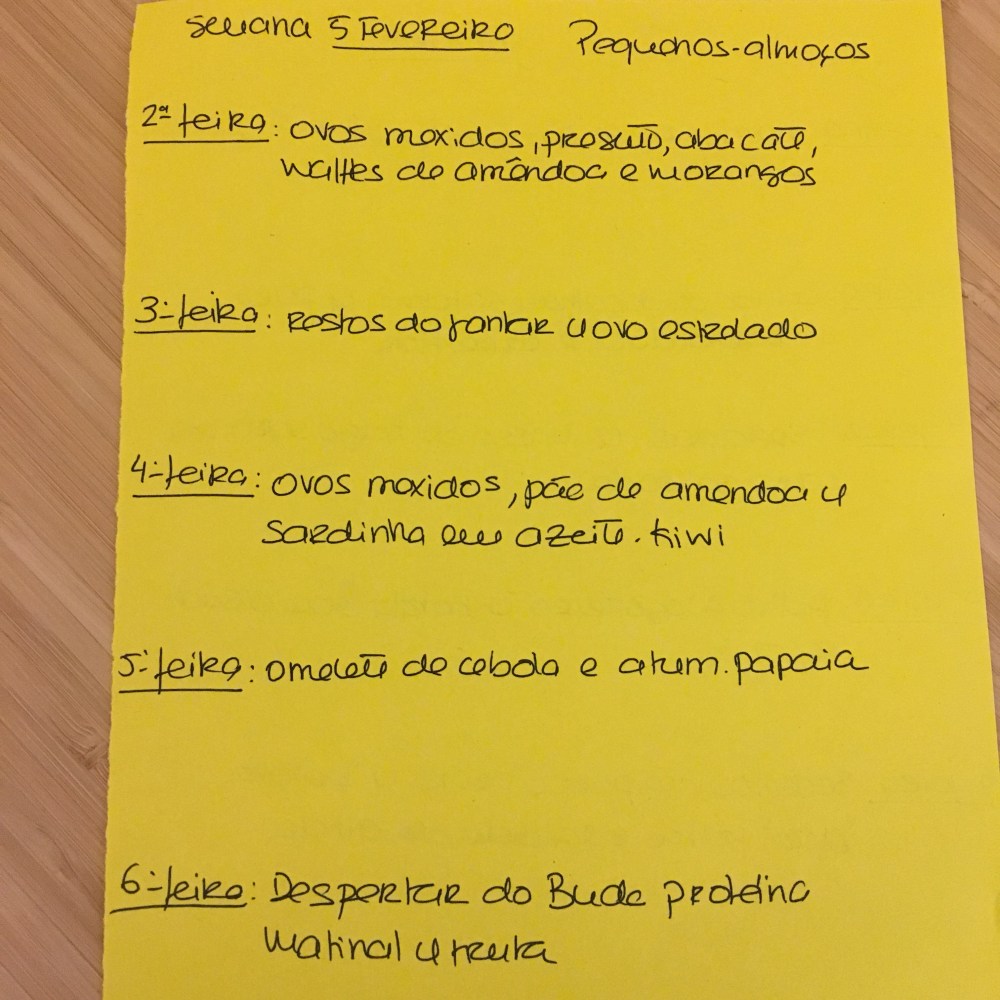 Semana 5 Fevereiro Pequenos-almoços
2ª feira: ovos mexidos, prosciuto, abacate,
waffles de amêndoa e morangos
3ª-feira: Restos do jantar e ovo estrelado
4ª-feira: ovos mexidos, pão de amendoa e
sardinha em azeite. Kiwi
5ª-feira: omelete de cebola e atum. papaia
6ª-feira: Despertar do Buda proteina
matinal e fruta